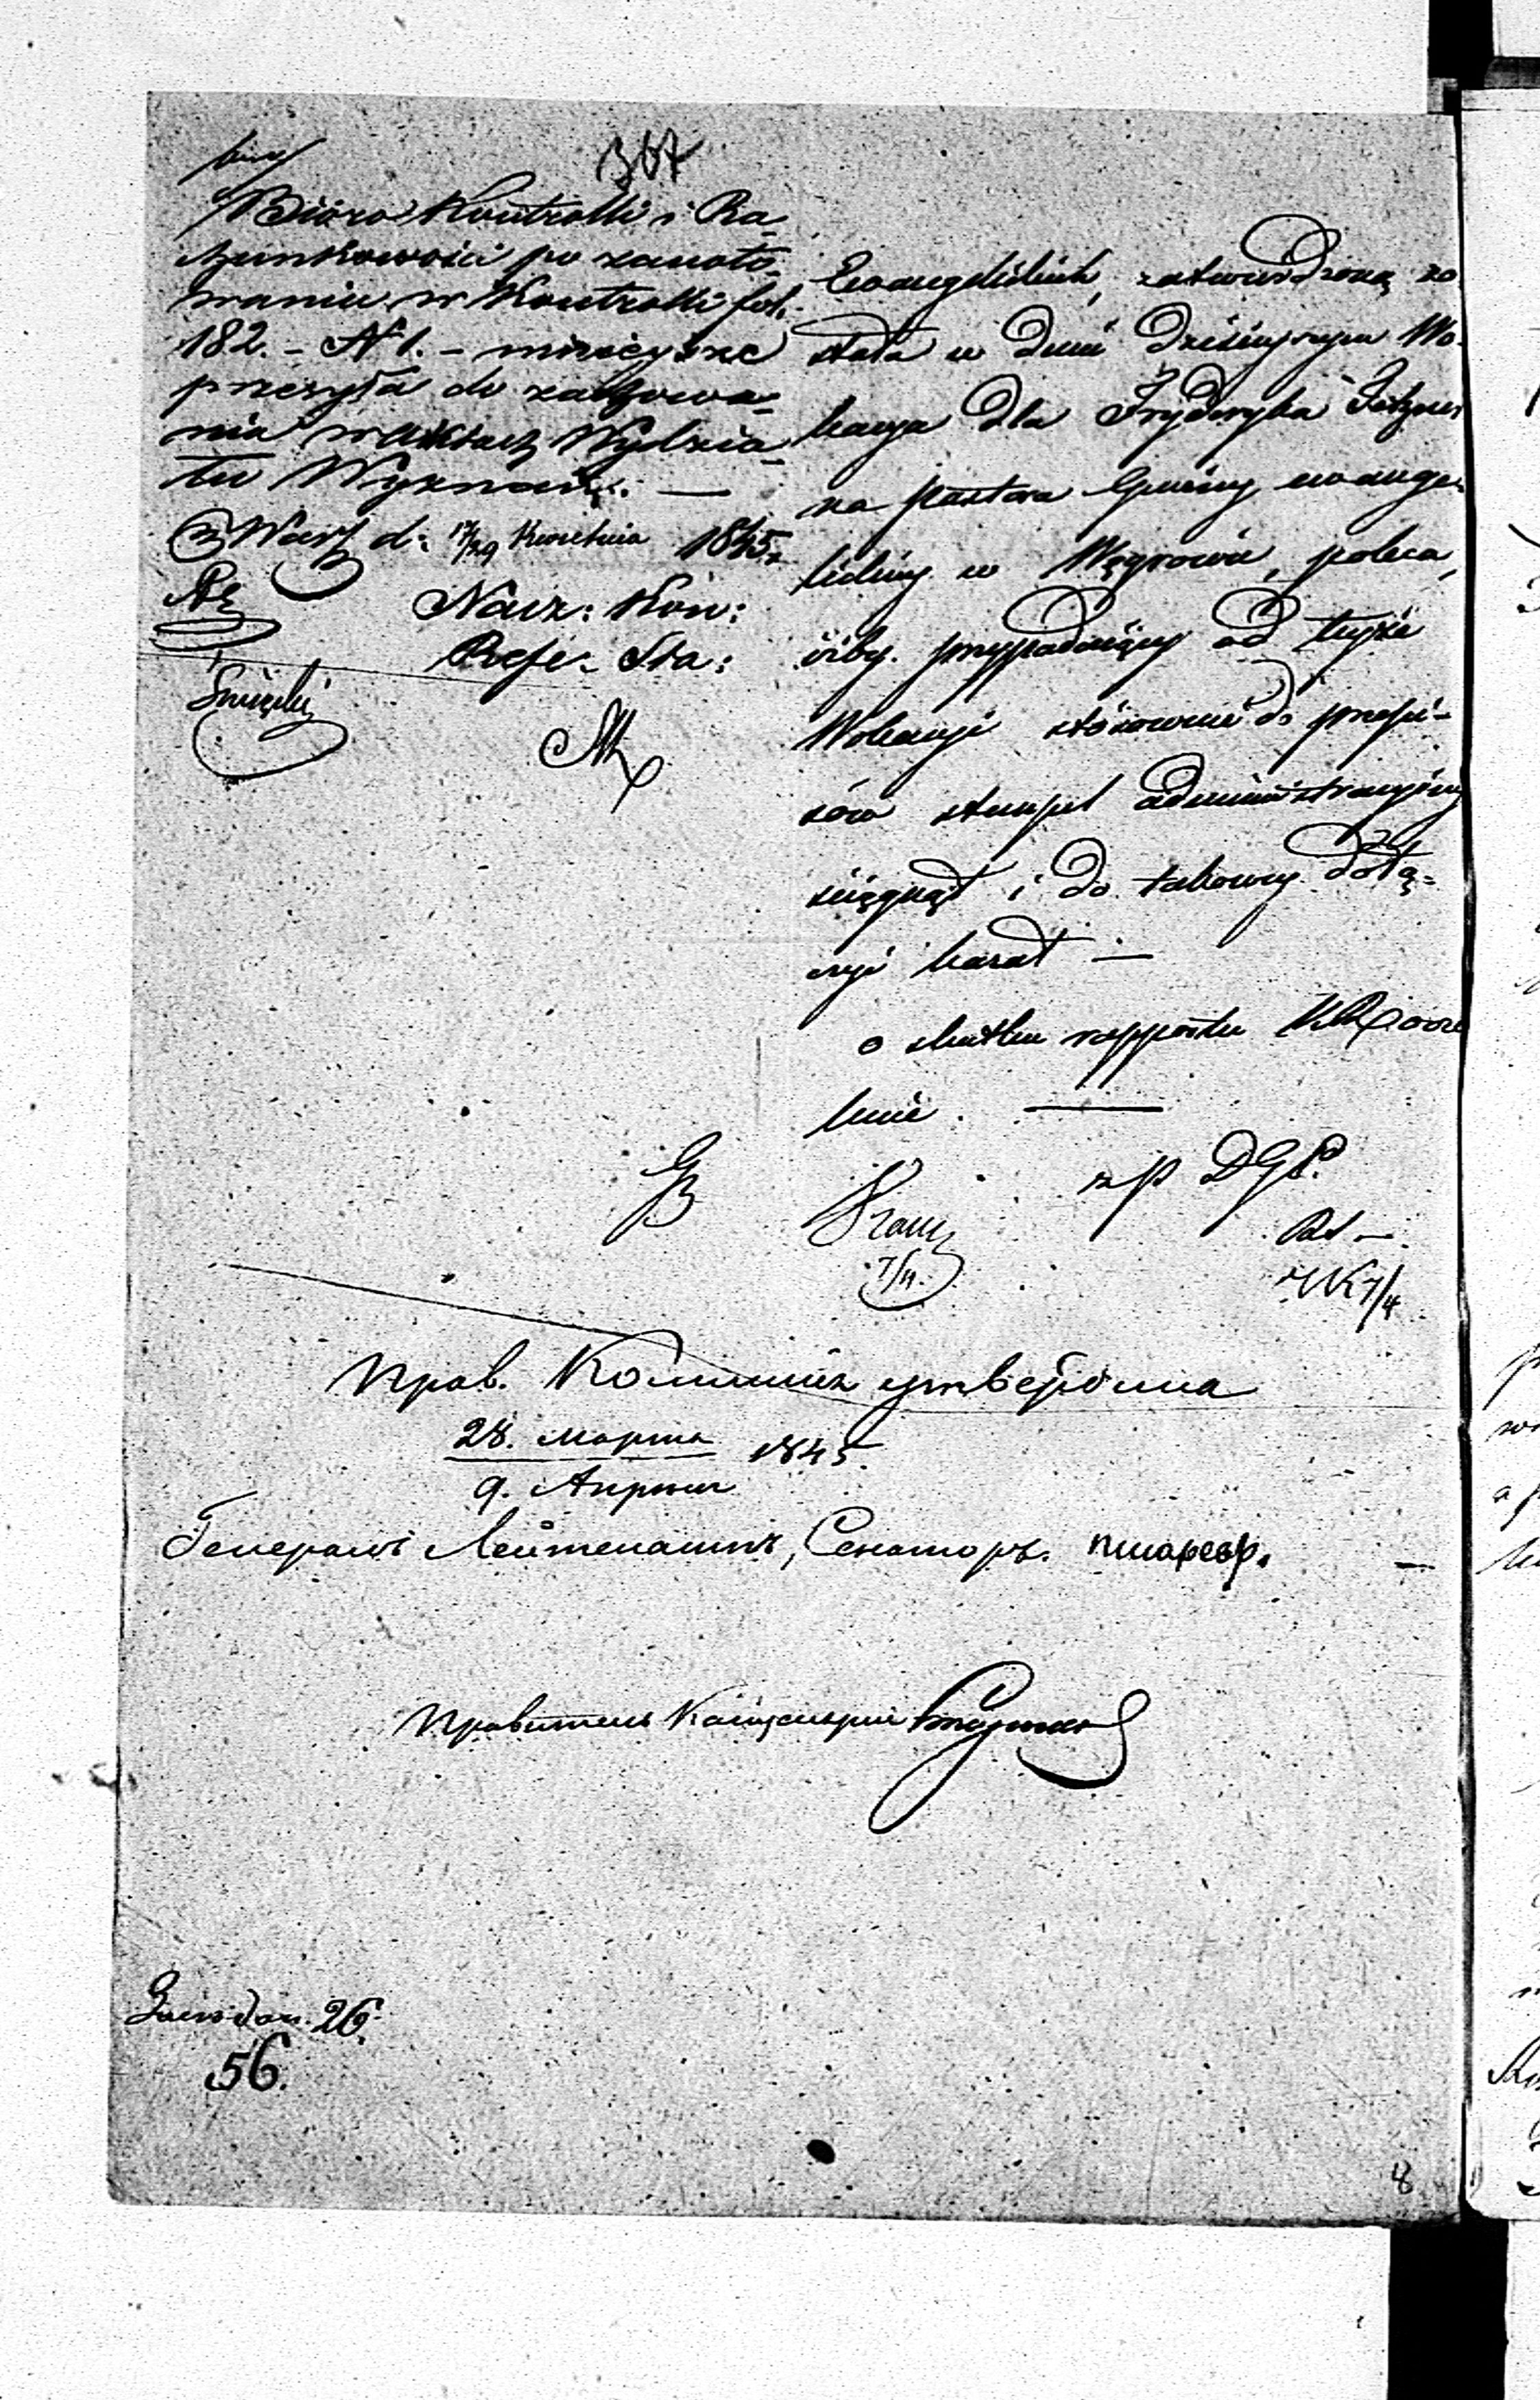 367
Bióro Kontrolli i Ra-
chunkowości po zanoto-
waniu w Kontrolli fol.
182. - N 1. - niniejsze
przesyła do zachowa-
nia w aktach Wydzia-
łu Wyznań. —
z Warsz d: 17/29 Kwietnia 1845
Nacz: Kon:
Refe: Sta:
Ewangelickich, zatwierdzoną zo
stała w dniu dzisiejszym Wo-
kacya dla Fryderyka
na pastora Gminy ewange-
lickiey w Węgrowie, poleca,
iżby przypadający od teyże
Wokacyi stósownie do przepi-
sów stempel administracyjny
ściągnął i do takowey dołą-
czyć kazał —
o skutku rapportu KR ocze
kuie. —
z p DGP.
7/4.
7/4
Прав. Коммисія утвердила
28. Марта 1845.
9. Апрѣля
Генералъ Лейтенантъ, Сенаторъ. Писарев.
Правитель Канцеляріи
26.
56.
8